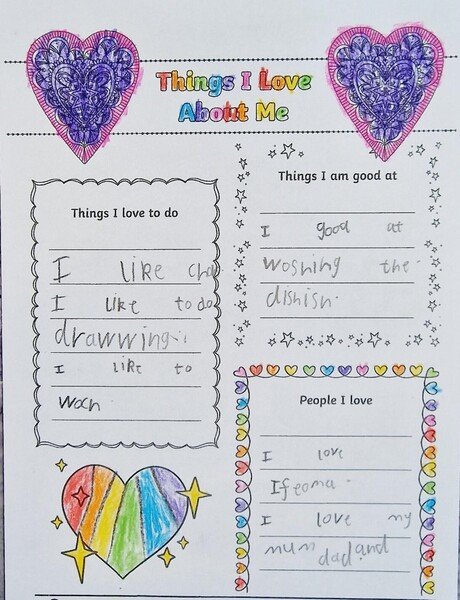 Things I Love
About Me
Things I love to do
I like
I like to do
drawwing.
I like to
woch
Things I am good at
I good at
woshing the
dishish.
People I love
I love
Ifeoma.
I love my
mum dad and